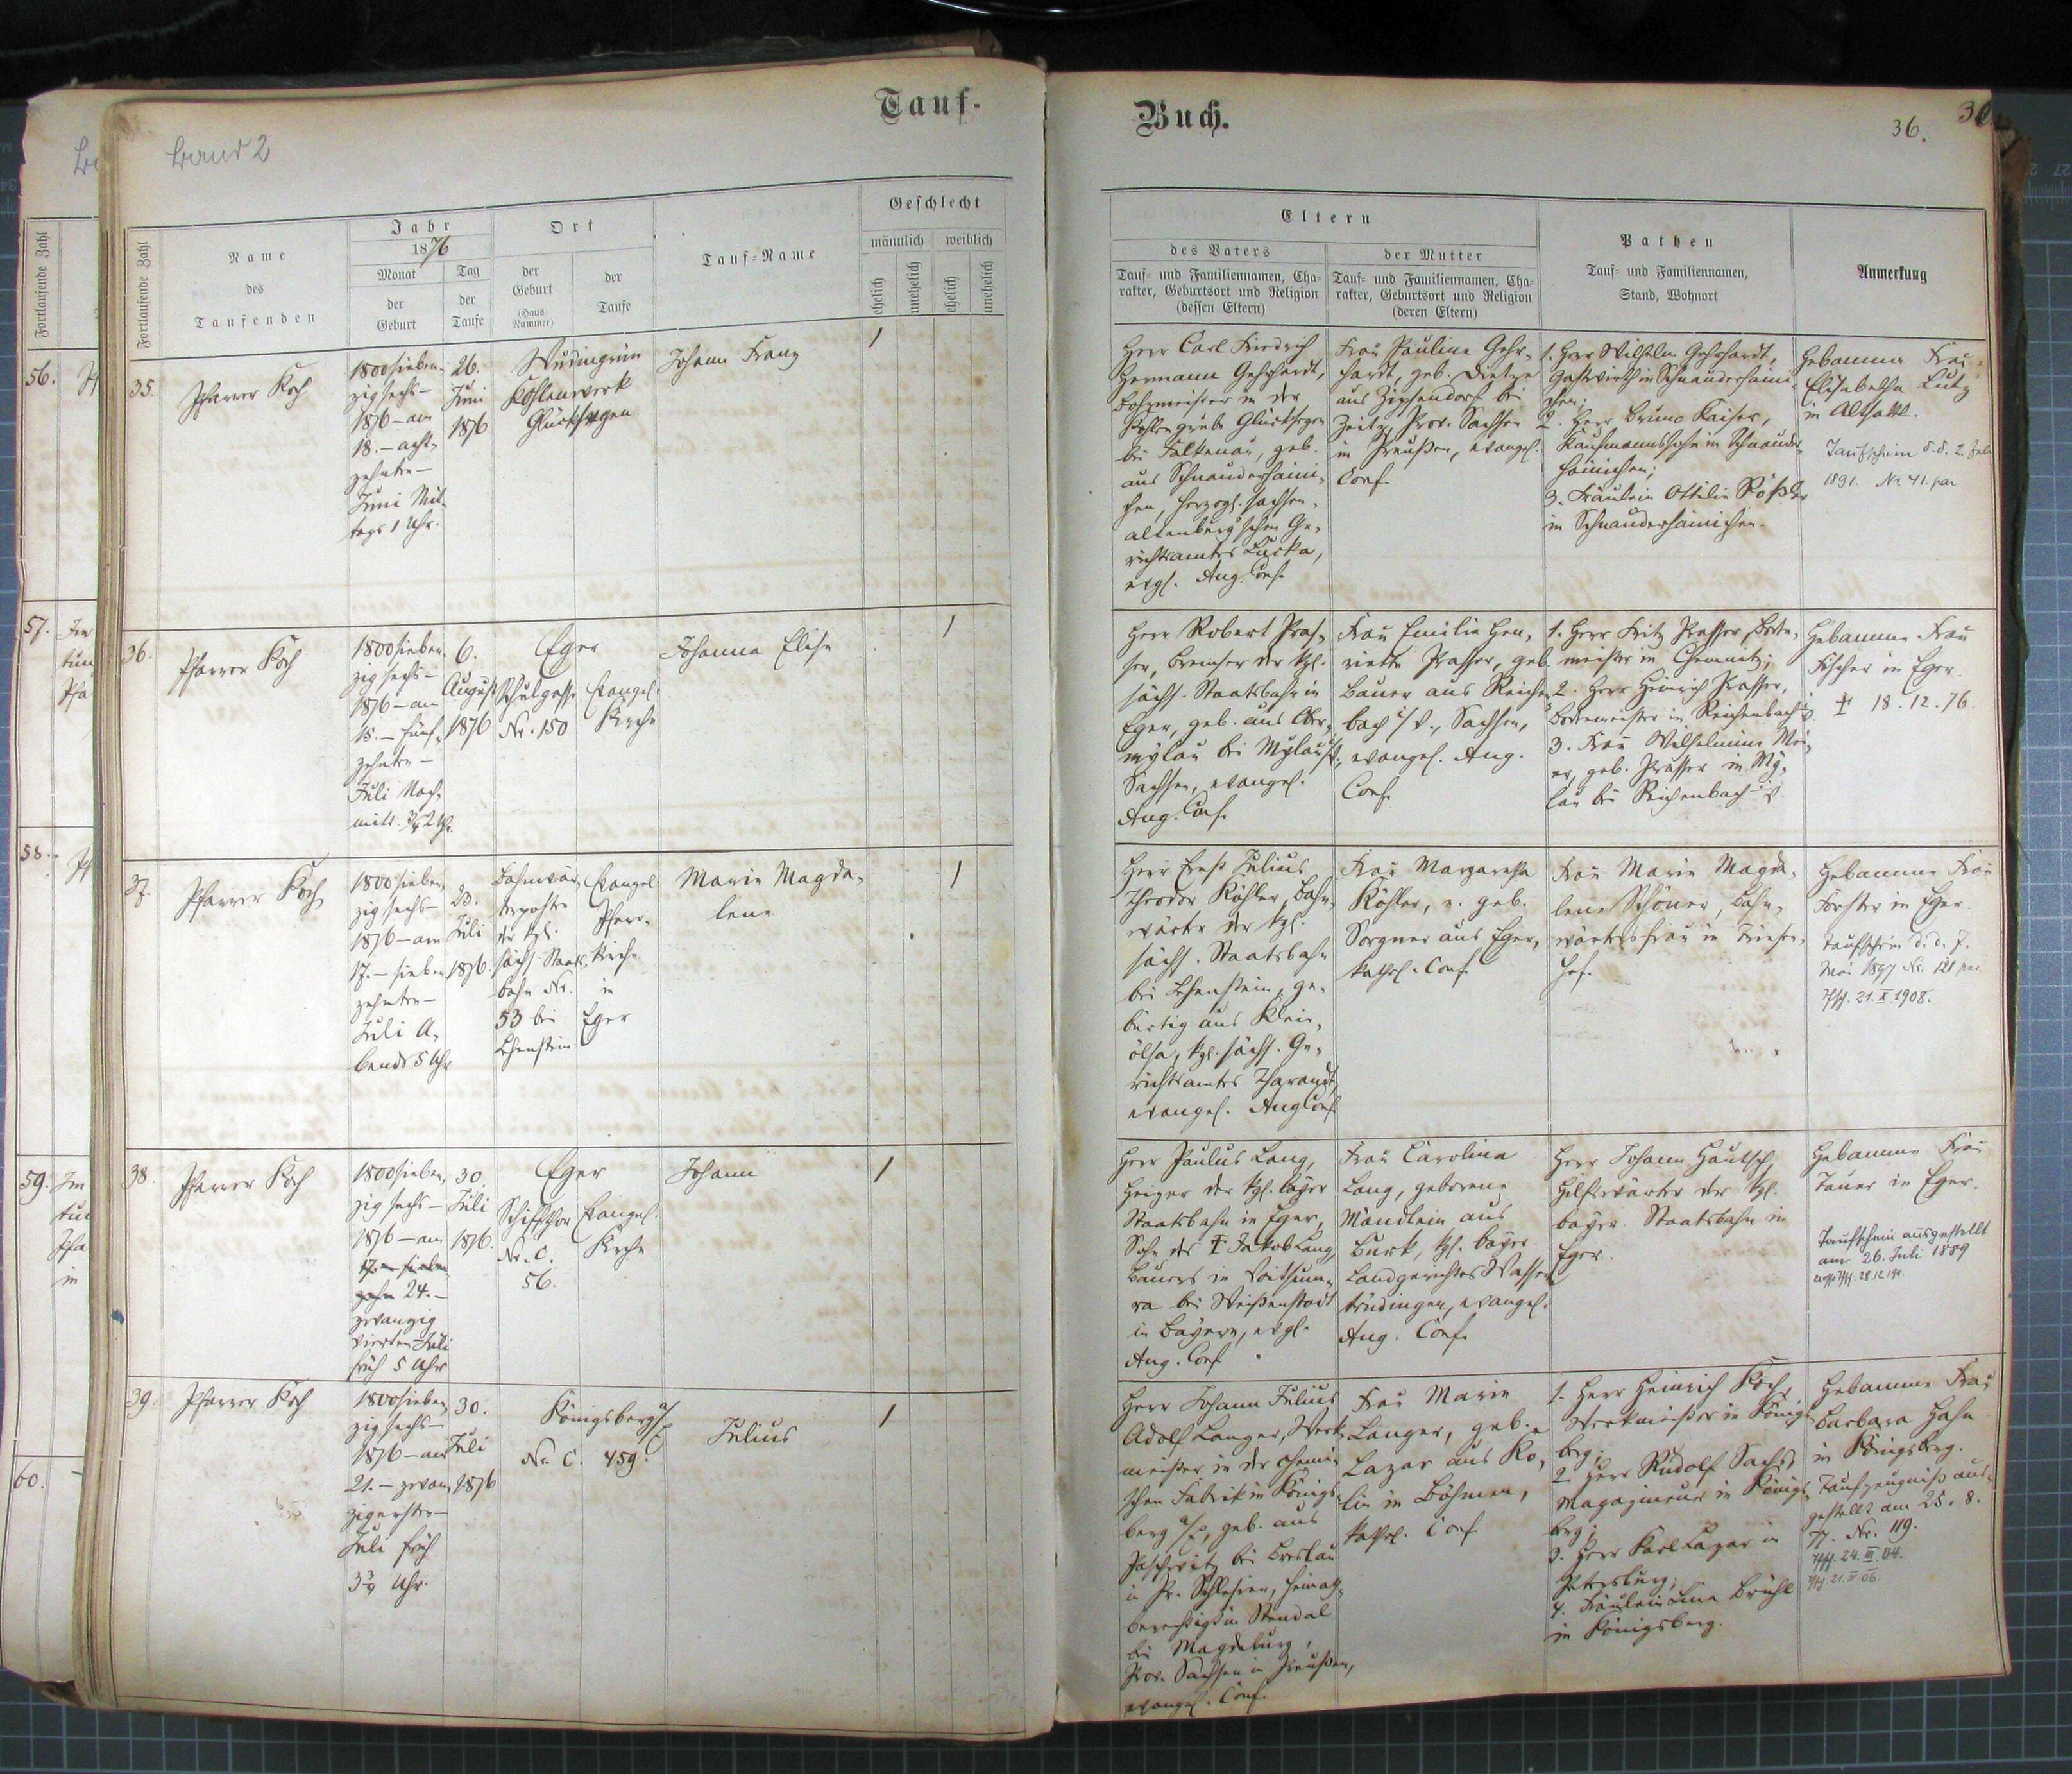 Tauf-
Buch.
36.
36.
Band 2
Fortlaufende Zahl
56.
57.
58.
59.
60.
Fortlaufende Zahl
Name
des
Taufenden
Jahr
1876
Monat
der
Geburt
Tag
der
Taufe
Ort
der
Geburt
(Haus-
Nummer)
der
Taufe
Tauf-Name
Geschlecht
männlich
weiblich
ehelich
unehelich
ehelich
unehelich
Eltern
des Vaters
Tauf- und Familiennamen, Cha-
rakter, Geburtsort und Religion
(dessen Eltern)
der Mutter
Tauf- und Familiennamen, Cha-
rakter, Geburtsort und Religion
(deren Eltern)
Pathen
Tauf- und Familiennamen,
Stand, Wohnort
Anmerkung
35.
Pfarrer Koch
1800 sieben-
zig sechs-
1876 - am
18. - acht-
zehnten -
Juni Mit-
tags 1 Uhr.
26.
Juni
1876
Wudingrün
Kohlenwerk
Glücksegen
Johann Franz
1
Herr Carl Friedrich
Hermann Gehrhardt,
Bohrmeister in der
Kohlengrube Glücksegen
bei Falkenau, geb.
aus Schnauderhaini-
chen, herzogl. sachsen-
altenburg'schen Ge-
richtsamtes Lucka,
evgl. Aug. Conf.
Frau Pauline Gehr-
hardt, geb. Dietze
aus Zipsendorf bei
Zeitz, Prov. Sachsen
in Preußen, evangel.
Conf.
1. Herr Wilhelm Gehrhardt,
Gastwirth in Schnauderhaini-
chen;
2. Herr Bruno Kaiser,
Kaufmannssohn in Schnauder-
hainichen;
3. Fräulein Ottilie Rößler
in Schnauderhainichen.
Hebamme Frau
Elisabetha Lutz
in Altsattl.
Taufschein d. d. 2. Feb
1891. Nr. 41. par
36.
Pfarrer Koch
1800 sieben-
zig sechs-
1876 - am
15. - fünf-
zehnten -
Juli Nach-
mitt. 3/4 2 Uhr.
6.
August
1876
Eger
Schulgasse
Nr. 150
Evangel.
Kirche
Johanna Elise
1
Herr Robert Pras-
ser, Bremser der kgl.
sächs. Staatsbahn in
Eger, geb. aus Ober-
mylau bei Mylau i/V.,
Sachsen, evangel.
Aug. Conf.
Frau Emilie Hen-
riette Prasser, geb.
Bauer aus Reichen-
bach i/V., Sachsen,
evangel. Aug.
Conf.
1. Herr Fritz Prasser, Boden-
meister in Chemnitz;
2. Herr Heinrich Prasser,
Bodenmeister in Reichenbach i/V
3. Frau Wilhelmine Mei-
er, geb. Prasser in My-
lau bei Reichenbach i/V.
Hebamme Frau
Fischer in Eger.
† 18. 12. 76.
37.
Pfarrer Koch
1800 sieben-
zig sechs-
1876 - am
17. - sieben-
zehnten -
Juli A-
bends 5 Uhr
23.
Juli
1876.
Bahnwär-
terposten
der kgl.
sächs. Staats-
bahn Nr.
53 bei
Lehenstein
Evangel.
Pfarr-
kirche
in
Eger
Marie Magda-
lene
1
Herr Ernst Julius
Theodor Köhler, Bahn-
wärter der kgl.
sächs. Staatsbahn
bei Lehenstein, ge-
bürtig aus Klein-
ölsa, kgl. sächs. Ge-
richtsamtes Tharandt,
evangel. Aug Conf.
Frau Margaretha
Köhler, e. geb.
Sorgner aus Eger,
kathol. Conf.
Frau Marie Magda-
lene Schöner, Bahn-
wärtersfrau in Triesen-
hof.
Hebamme Frau
Forster in Eger.
Taufschein d. d. 7.
Mai 1897 Nr. 121 par.
21. X. 1908.
38.
Pfarrer Koch
1800 sieben-
zig sechs -
1876 - am
17. - sieben-
zehn 24. -
zwanzig
vierten Juli
früh 5 Uhr
30.
Juli
1876.
Eger
Schiffthor
Nr. C.
56.
Evangel.
Kirche
Johann
1
Herr Paulus Lang,
Heizer der kgl. bayer
Staatsbahn in Eger,
Sohn des † Jakob Lang,
Bauers in Voitsum-
ra bei Weißenstadt
in Bayern, evgl.
Aug. Conf
Frau Carolina
Lang, geborene
Mändlein aus
Burk, kgl. bayer.
Landgerichtes Wasser-
trüdingen, evangel.
Aug. Conf.
Herr Johann Hautsch,
Hilfswärter der kgl.
bayer. Staatsbahn in
Eger.
Hebamme Frau
Tauer in Eger.
Taufschein ausgestellt
am 26. Juli 1889
39.
Pfarrer Koch
1800 sieben-
zig sechs -
1876 - am
21. - zwan-
zigersten -
Juli früh
3 3/4 Uhr.
30.
Juli
1876
Königsberg a/E
Nr. C. 459.
Julius
1
Herr Johann Julius
Adolf Langer, Werk-
meister in der chemi-
schen Fabrik in Königs-
berg a/E, geb. aus
Paschwitz bei Breslau
in Pr. Schlesien, heimat-
berechtigt in Stendal
bei Magdeburg,
Prov. Sachsen in Preußen,
evangel. Conf.
Frau Marie
Langer, geb.
Lazar aus Ko-
lin in Böhmen,
kathol. Conf.
1. Herr Heinrich Koch,
Werkmeister in Königs-
berg;
2. Herr Rudolf Sachs,
Magazineur in Königs-
berg;
3. Herr Karl Lazar in
Petersburg;
4. Fräulein Lina Brühl
in Königsberg.
Hebamme Frau
Barbara Hahn
in Königsberg.
Taufzeugniß aus-
gestellt am 25. 8.
Nr. 119.
24. III. 04.